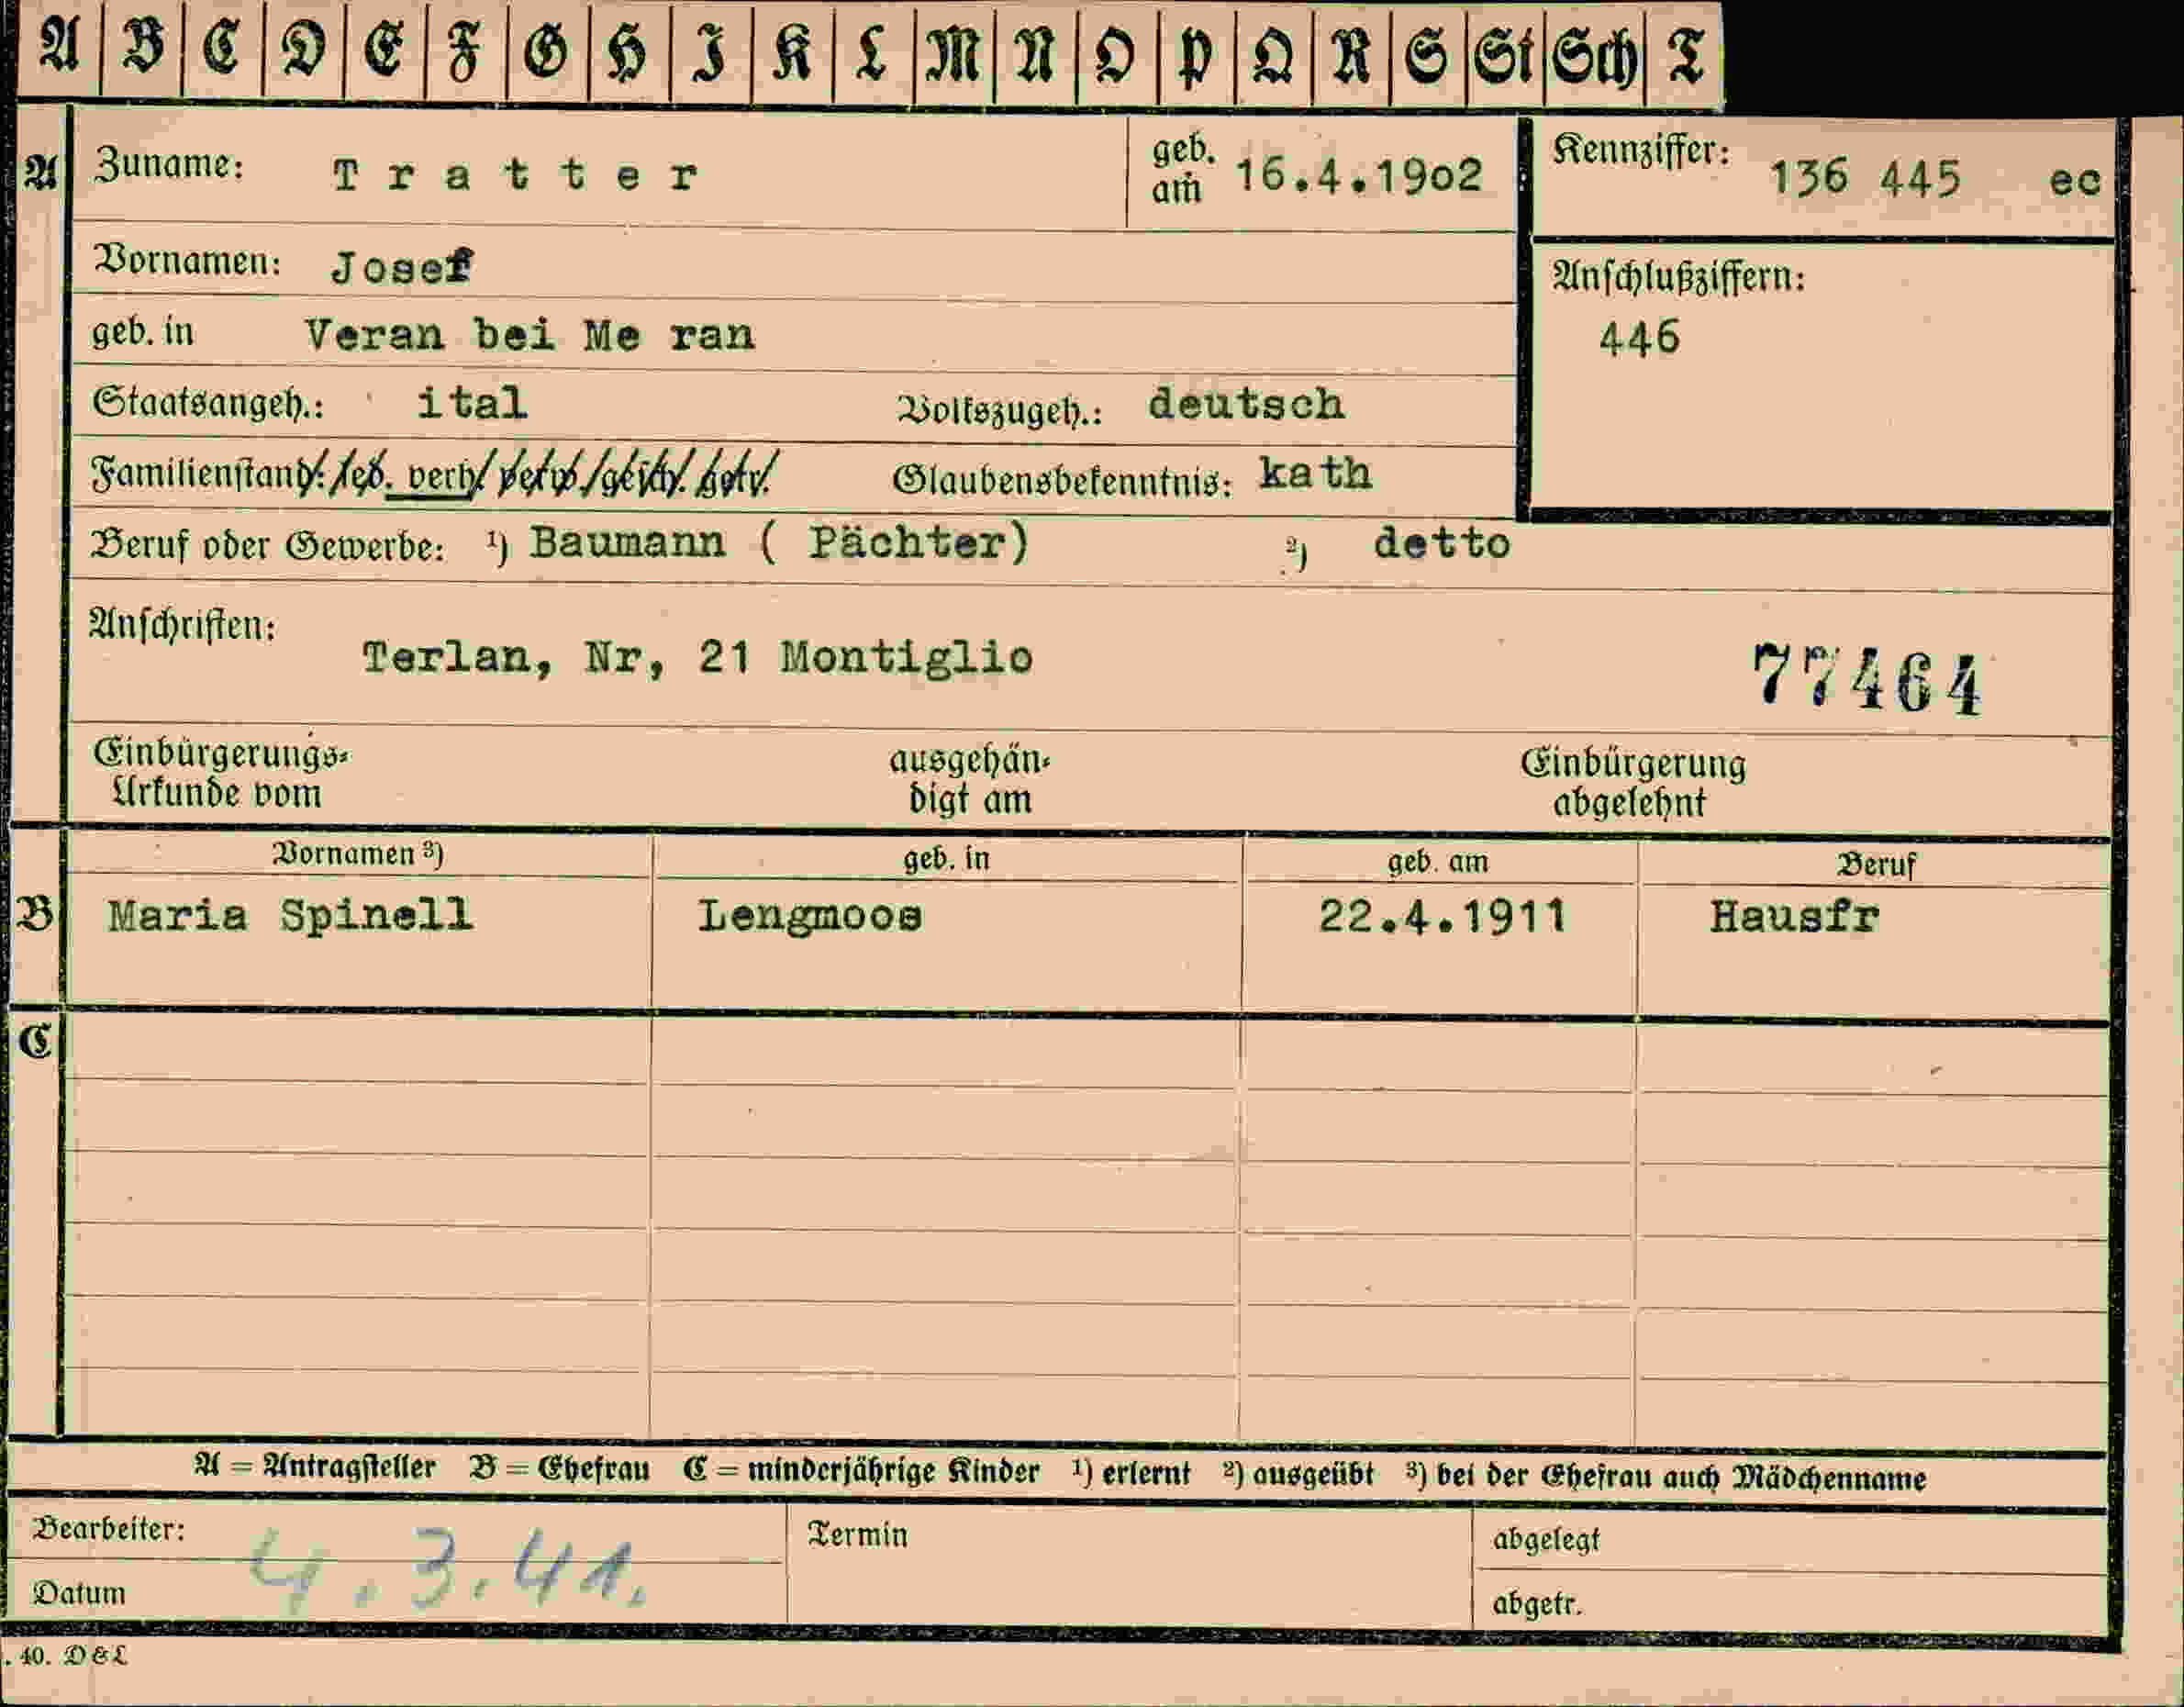 A B C D E F G H I K L M N O P Q R S St Sch T
A Zuname: Tratter geb. am 16.4.19o2 Kennziffer: 136 445 ec
Vornamen: Josef
Anschlußziffern:
geb. in Veran bei Me ran 446
Staatsangeh.: ital Volkszugeh.: deutsch
Familienstand: led. verh. verw. gesch. getr. Glaubensbekenntnis: kath
Beruf oder Gewerbe: ¹) Baumann ( Pächter) ²) detto
Anschriften:
Terlan, Nr, 21 Montiglio 77464
Einbürgerungs- ausgehän- Einbürgerung
Urkunde vom digt am abgelehnt
Vornamen ³) geb. in geb. am Beruf
B Maria Spinell Lengmoos 22.4.1911 Hausfr
C
A = Antragsteller B = Ehefrau C = minderjährige Kinder ¹) erlernt ²) ausgeübt ³) bei der Ehefrau auch Mädchenname
Bearbeiter: Termin abgelegt
4.3.41.
Datum abgetr.
. 40. D & L